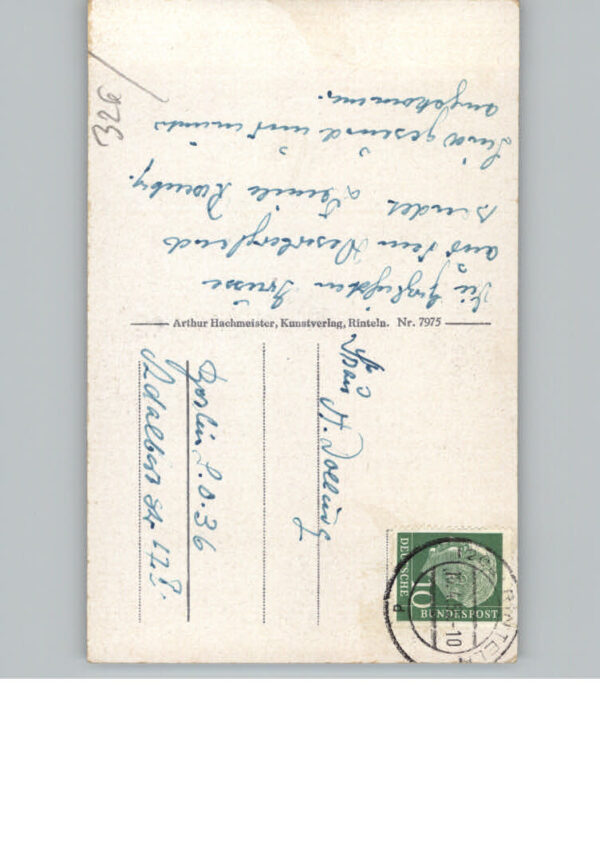 Die herzlichsten Grüsse
aus dem Weserbergland
sendet Familie
Sind gesund und munter
angekommen.
Arthur Hachmeister, Kunstverlag, Rinteln. Nr. 7975
Frau A.
Berlin S.O. 36
Adalbert Str.
DEUTSCHE
BUNDESPOST
10
RINTELN
-10
326